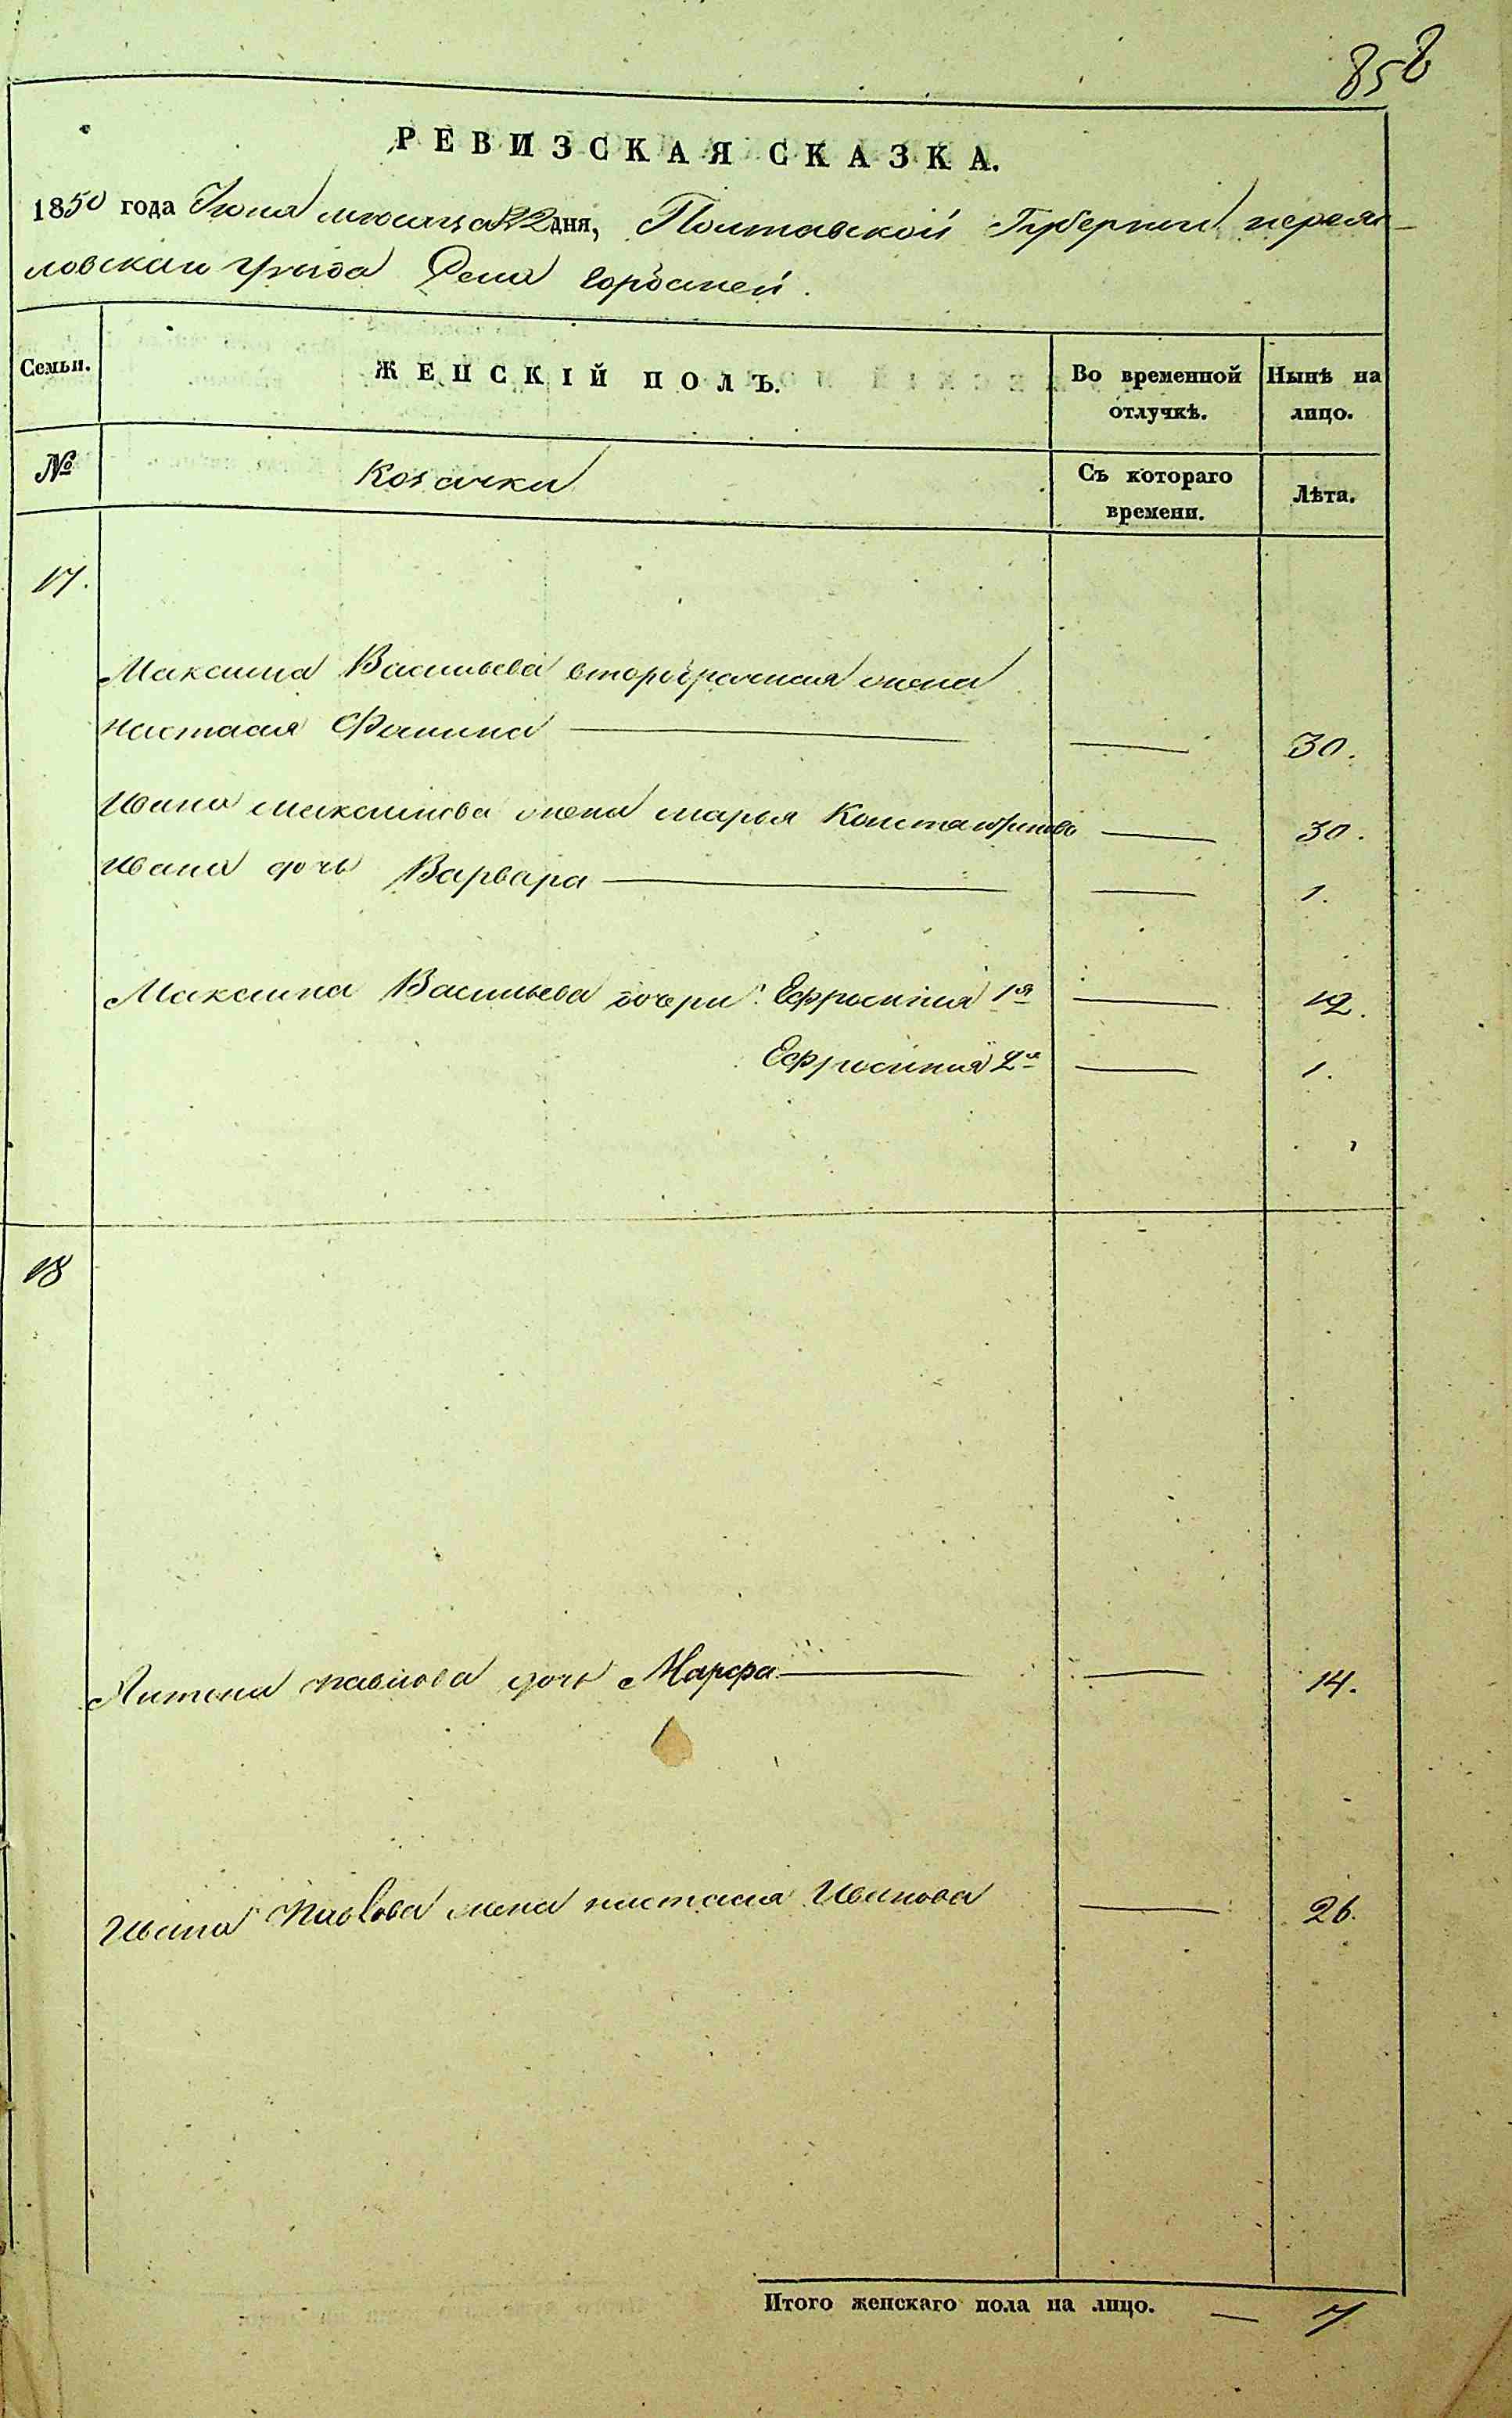 858
РЕВИЗСКАЯ СКАЗКА.
1850 года Июня месяца 22 дня, Полтавской Губернии переяс-
ловского уезда Села
Семьи. ЖЕНСКІЙ ПОЛЪ. Во временной отлучкѣ. Нынѣ на лицо.
№ Козачки Съ котораго времени. Лѣта.
17.
Максима Васильева второбрачная жена
настасия Фомина — — 30.
Ивана максимова жена марья Константинова — 30.
Ивана дочь Варвара — — 1.
Максима Васильева дочери: Ефросиния 1я — 12.
Ефросиния 2я — 1.
18
Антона павлова дочь Марфа — — 14.
Ивана Павлова жена настасия Иванова — 26.
Итого женскаго пола на лицо. — 7